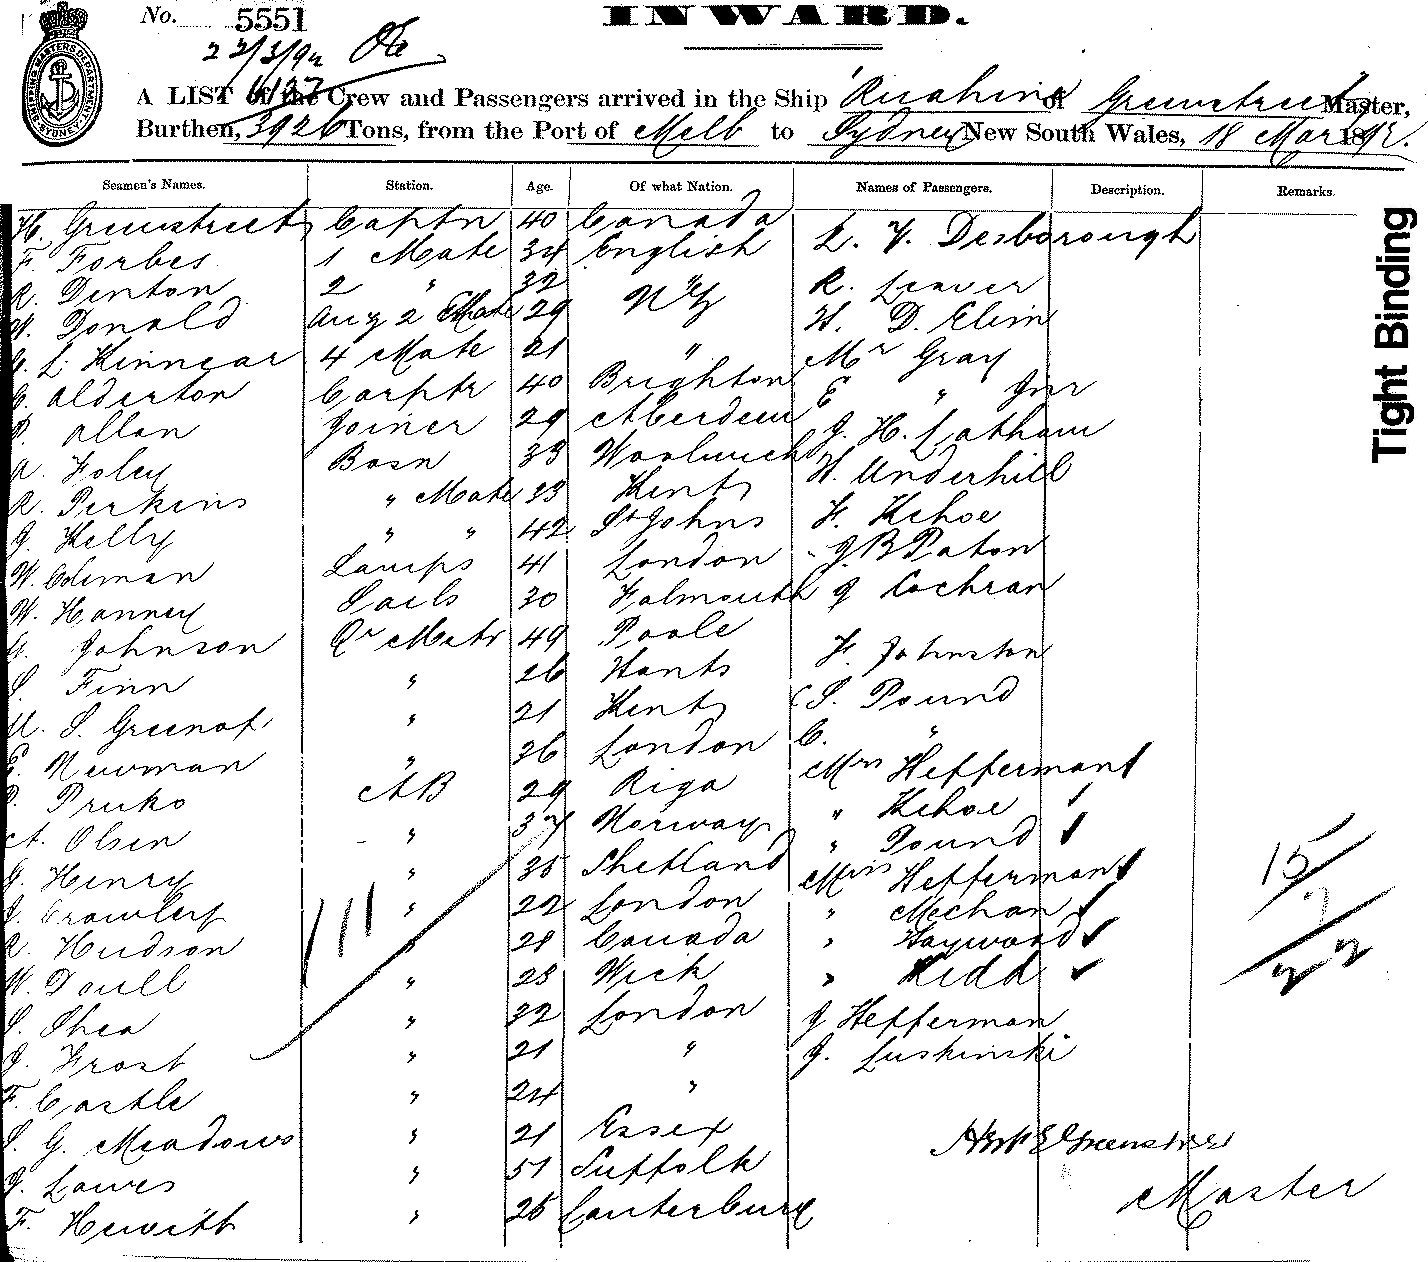 No. 5551
INWARD.
22/3/92
A LIST of the Crew and Passengers arrived in the Ship "Ruahine" of Greenstreet Master,
Burthen, 3926 Tons, from the Port of Melb to Sydney New South Wales, 18 Mar 1892.
Seamen's Names. Station. Age. Of what Nation. Names of Passengers. Description. Remarks.
H. Greenstreet Captn 40 Canada L. V. Desborough
F. Forbes 1 Mate 34 English
R. Denton 2 " 32 R. Leaver
W. Donald Aug 2 Mate 29 NZ H. D. Elim
G. L. Kinnear 4 Mate 21 " Mr Gray
C. Alderton Carptr 40 Brighton E " Jnr
P. Allan Joiner 29 Aberdeen J. H. Latham
R. Foley Bosn 33 Woolwich W. Underhill
R. Perkins " Mate 33 Kent
J. Kelly " " 42 St Johns F. Kehoe
W. Coleman Lamps 41 London J B Paton
W. Hanney Sails 30 Falmouth J Cochran
Johnson Qr Mastr 49 Poole F. Johnston
S. Finn " 26 Hants
S. Greenof " 21 Kent S. Pound
E. Newman " 36 London C. "
Pruko AB 29 Riga Mrs Heffermant
A. Olsen " 37 Norway " Kehoe
J. Henry " 35 Shetland " Pound
J. Crowley " 22 London Miss Hefferman
R. Hudson " 28 Canada " Mechan
W. Doull " 28 Wick " Hayward
S. Shea " 32 London " Kidd
J. Frost " 21 " J Hefferman
F. Castle " 24 " J. Luskinski
S. G. Meadows " 21 Essex
J. Lawes " 51 Suffolk
F. Hewitt " 25 Canterbury
15
7
22
Greenstreet
Master
Tight Binding